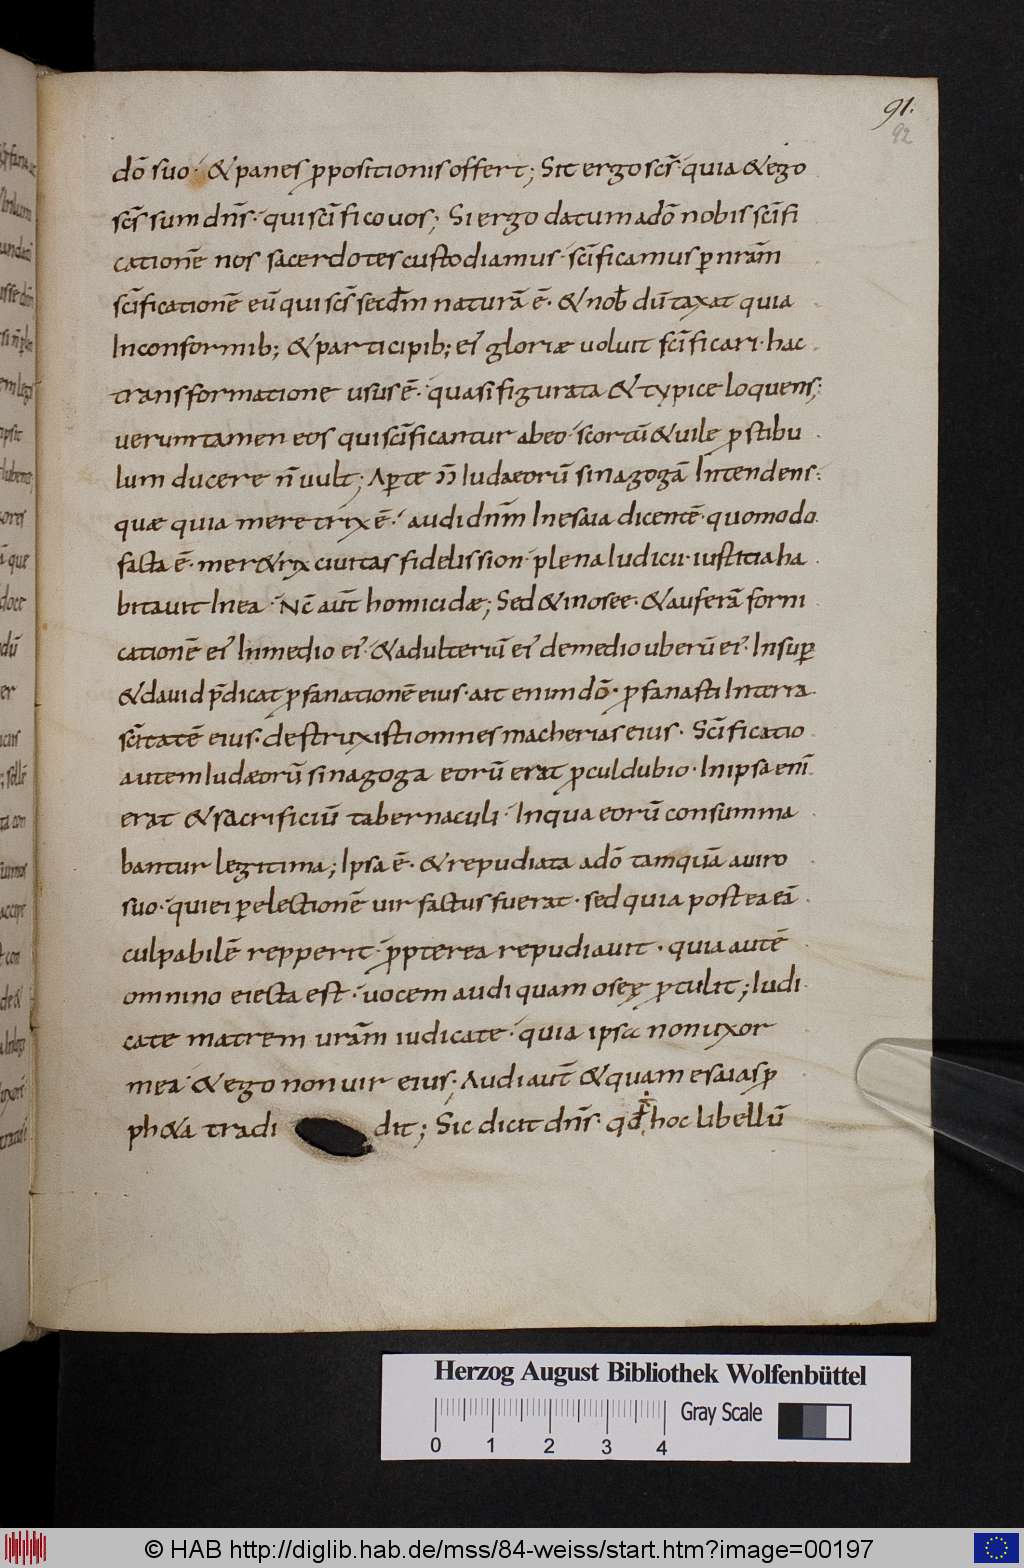 91.
92
dō suo· & panes ꝓpositionis offert; Sit ergo scs̄· quia & ego
scs̄ sum dn̄s· qui scīfico uos; Si ergo datum a dō nobis scīfi
cationē nos sacerdotes custodiamus· scīficamus ꝑ nrām
scīficationē eū qui scs̄ secd̄m naturā ē· & nob̄ dū taxat quia
In conformib; & participib; ei᾽ gloriæ uoluit scīficari· hac
transformatione usus ē· quasi figurata & typice loquens;
uerumtamen eos qui scīficantur ab eo· scortū & uile ꝓstibu
lum ducere n̄ uult; Aꝑte n̄ Iudaeorū sinagogā Intendens·
quæ quia meretrix ē· audi dn̄m In esaia dicentē· quomodo
facta ē· mer&rix ciuitas fidelis sion· plena Iudicii· iustitia ha
bitauit In ea· Nc̄ aut̄ homicidæ; Sed & in osee· & auferā forni
cationē ei᾽ In medio ei᾽· & adulteriū ei᾽ de medio uberū ei᾽· Insuꝑ
& dauid p̄dicat ꝓfanationē eius· ait enim dō· ꝓfanasti In terra
scītatē eius· destruxisti omnes macherias eius· Scīficatio
autem Iudæorū sinagoga eorū erat ꝓcul dubio· In ipsa enī
erat & sacrificiū tabernaculi· In qua eorū consumma
bantur legitima; Ipsa ē· & repudiata a dō tamquā a uiro
suo· qui ei ꝑ electionē uir factus fuerat· sed quia postea eā
culpabilē repperit· ꝓpterea repudiauit· quia autē
omnino eiecta est· uocem audi quam oseę ꝓtulit; Iudi
cate matrem urām iudicate· quia ipsa non uxor
mea· & ego non uir eius; Audi aut̄ & quam esaias ꝓ
ph&a tradi dit; Sic dicit dn̄s· qd̄ hoc libellū
Herzog August Bibliothek Wolfenbüttel
0 1 2 3 4
Gray Scale
© HAB http://diglib.hab.de/mss/84-weiss/start.htm?image=00197